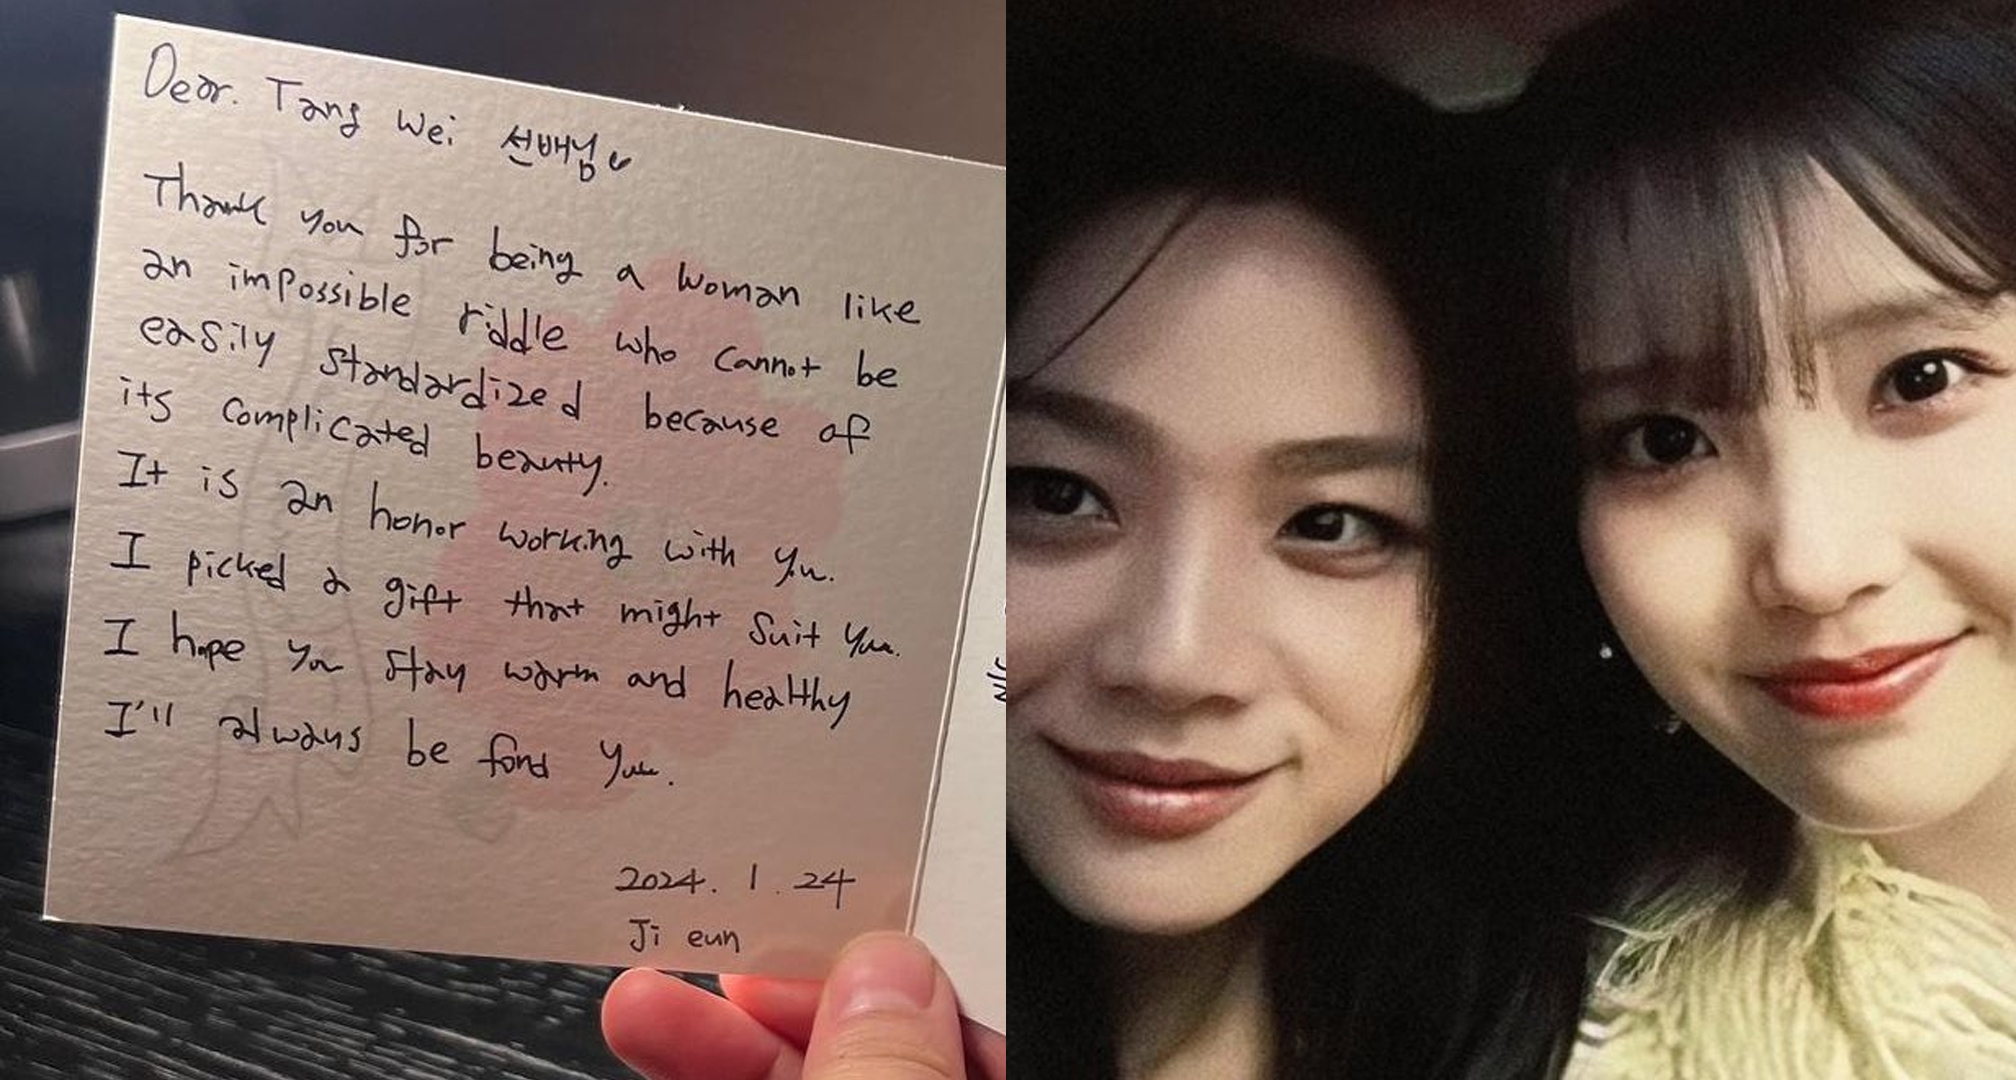 Dear. Tang Wei 선배님
Thank you for being a woman like
an impossible riddle who cannot be
easily standardized because of
its complicated beauty.
It is an honor working with you.
I picked a gift that might suit you.
I hope you stay warm and healthy
I'll always be fond you.
2024. 1. 24
Ji eun